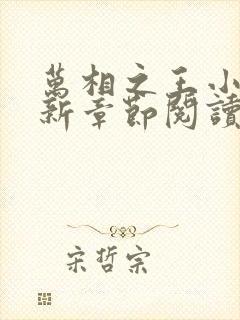 萬相之王小
新章節閱讀
宋哲宗